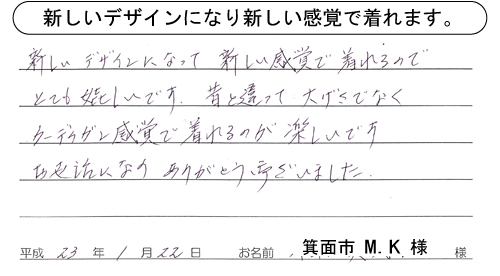 新しいデザインになり新しい感覚で着れます。
新しいデザインになって 新しい感覚で着れるので
とても嬉しいです。昔と違って 大げさでなく
カーデガン感覚で着れるのが楽しいです
お世話になり ありがとう事ざいました.
平成 23 年 1 月 22 日 お名前 箕面市 M.K 様 様